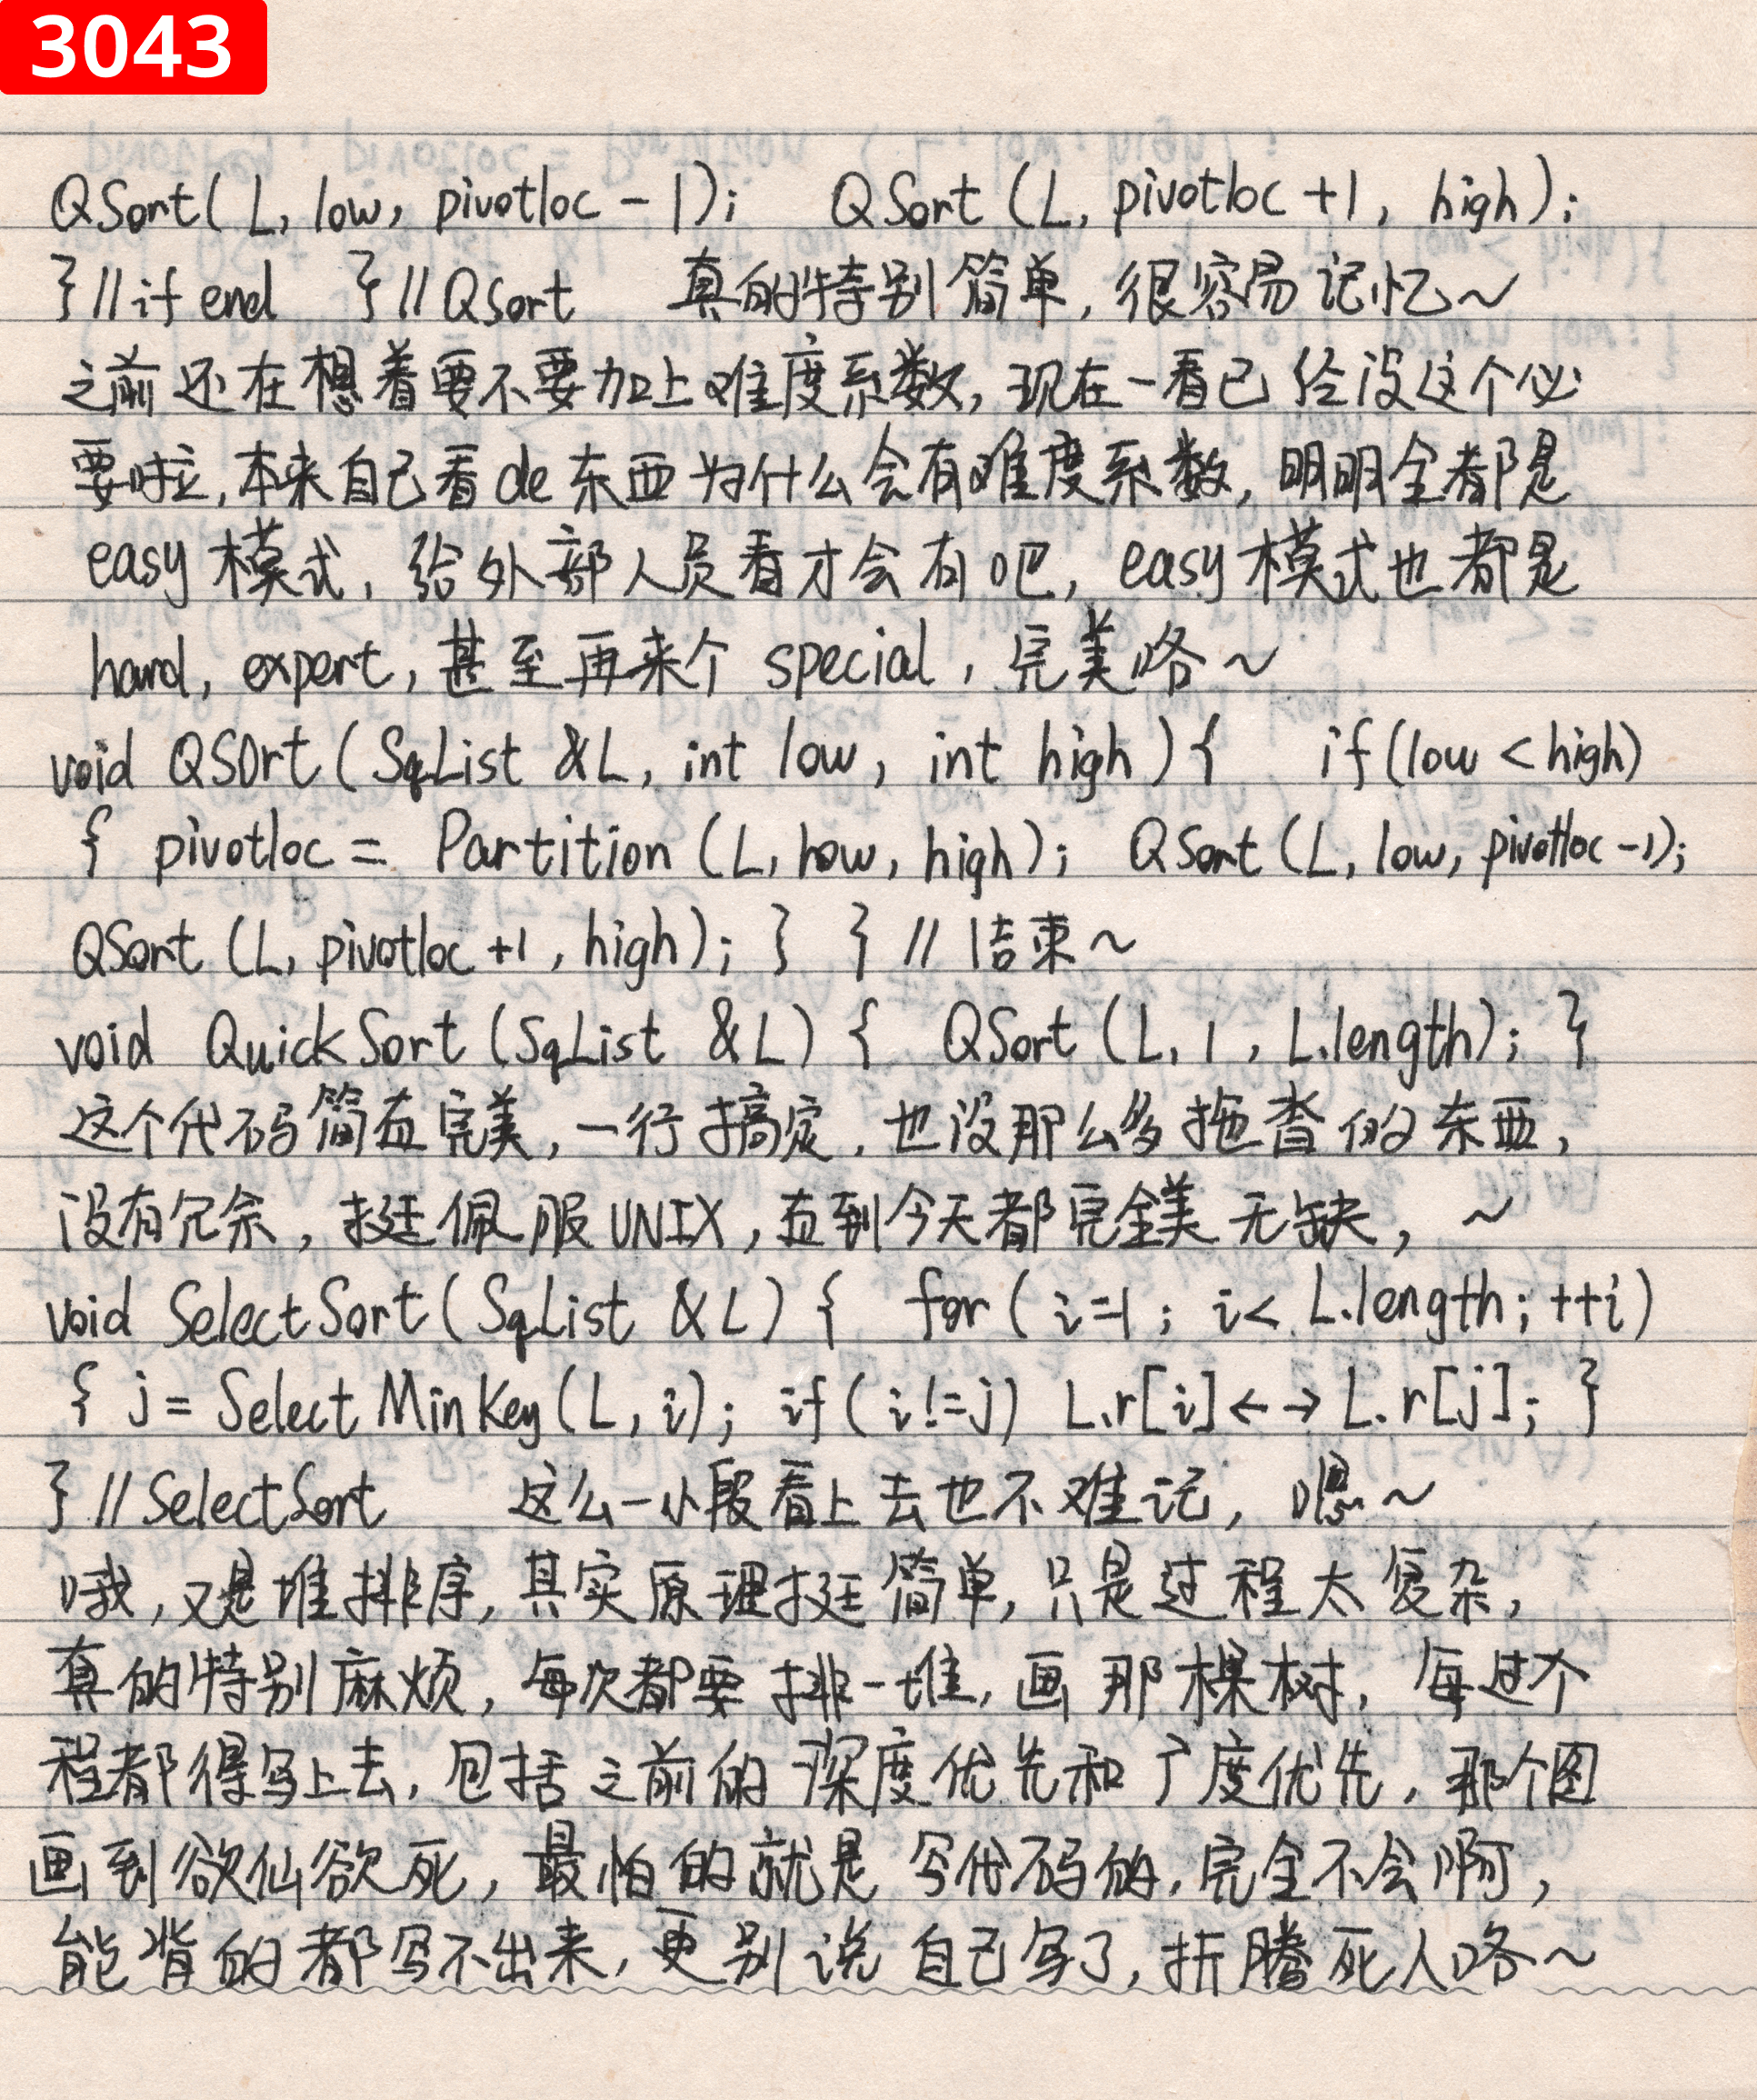 3043
QSort(L, low, pivotloc-1); QSort(L, pivotloc+1, high);
}//if end }//QSort 真的特别简单,很容易记忆~
之前还在想着要不要加上难度系数,现在一看已经没这个必
要啦,本来自己看de东西为什么会有难度系数,明明全都是
easy模式,给外部人员看才会有吧,easy模式也都是
hard, expert,甚至再来个special,完美咯~
void QSort(SqList &L, int low, int high){ if(low<high)
{ pivotloc = Partition(L, low, high); QSort(L, low, pivotloc-1);
QSort(L, pivotloc+1, high); } } //结束~
void QuickSort(SqList &L) { QSort(L, 1, L.length); }
这个代码简直完美,一行搞定,也没那么多拖沓的东西,
没有冗余,挺佩服UNIX,直到今天都完全美无缺,~
void SelectSort(SqList &L) { for(i=1; i<L.length; ++i)
{ j=SelectMinKey(L, i); if(i!=j) L.r[i]←→L.r[j]; }
}//SelectSort 这么一小段看上去也不难记,嗯~
哦,又是堆排序,其实原理挺简单,只是过程太复杂,
真的特别麻烦,每次都要排一堆,画那棵树,每过个
程都得写上去,包括之前的深度优先和广度优先,那个图
画到欲仙欲死,最怕的就是写代码的,完全不会啊,
能背的都写不出来,更别说自己写了,折腾死人咯~